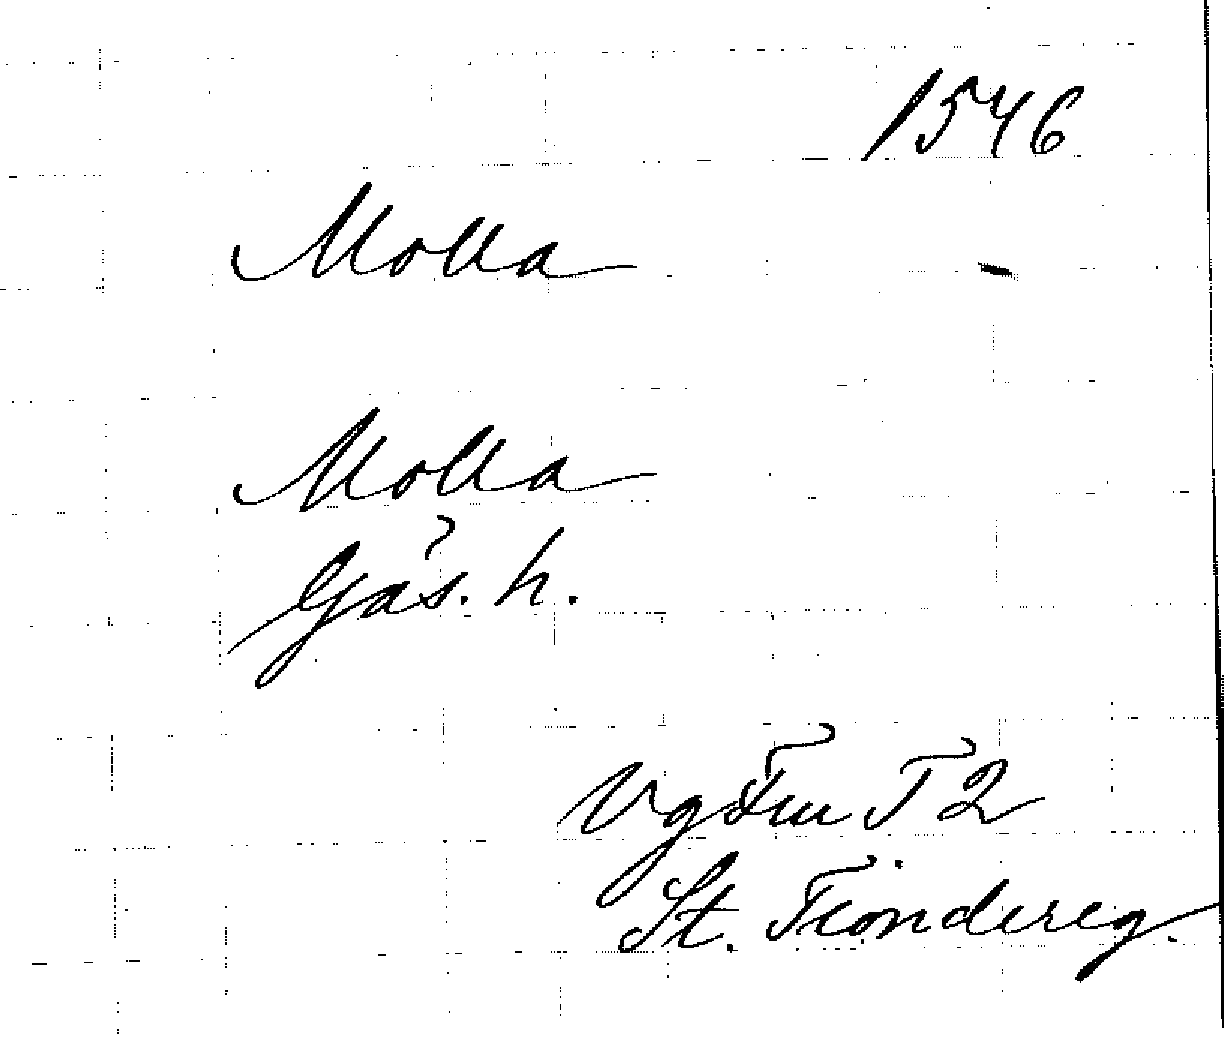 1546
Molla
Molla
Gäs. h.
Vg Fur T 2
St. Tiondereg.